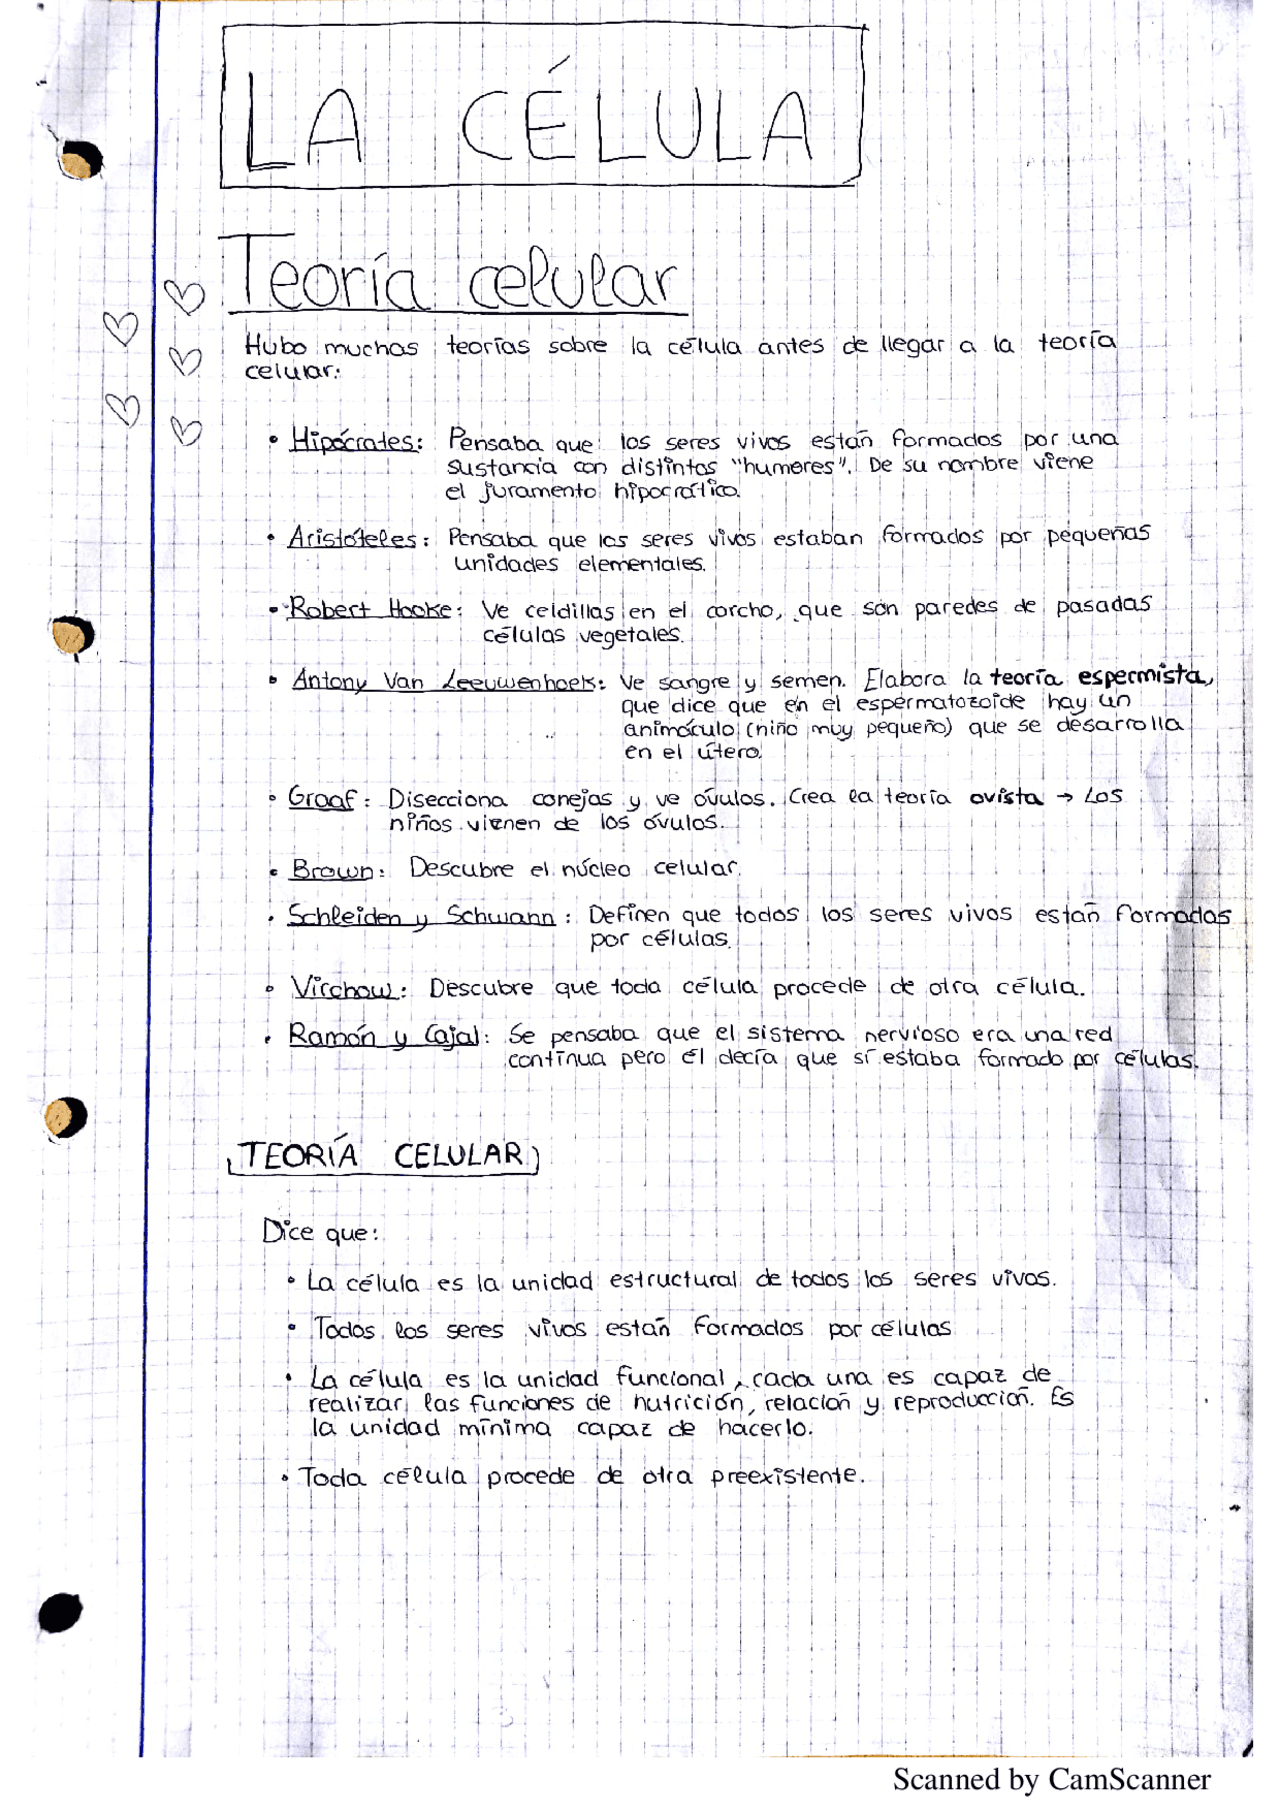 LA CÉLULA
Teoría celular
Hubo muchas teorías sobre la célula antes de llegar a la teoría
celular:
• Hipócrates: Pensaba que los seres vivos están formados por una
sustancia con distintos "humores". De su nombre viene
el juramento hipocrático.
• Aristóteles: Pensaba que los seres vivos estaban formados por pequeñas
unidades elementales.
• Robert Hooke: Ve celdillas en el corcho, que son paredes de pasadas
células vegetales.
• Antony Van Leeuwenhoek: Ve sangre y semen. Elabora la teoría espermista,
que dice que en el espermatozoide hay un
animáculo (niño muy pequeño) que se desarrolla
en el útero.
• Graaf: Disecciona conejas y ve óvulos. Crea la teoría ovista → Los
niños vienen de los óvulos.
• Brown: Descubre el núcleo celular.
• Schleiden y Schwann: Definen que todos los seres vivos están formados
por células.
• Virchow: Descubre que toda célula procede de otra célula.
• Ramón y Cajal: Se pensaba que el sistema nervioso era una red
continua pero él decía que sí estaba formado por células.
TEORÍA CELULAR
Dice que:
• La célula es la unidad estructural de todos los seres vivos.
• Todos los seres vivos están formados por células
• La célula es la unidad funcional, cada una es capaz de
realizar las funciones de nutrición, relación y reproducción. Es
la unidad mínima capaz de hacerlo.
• Toda célula procede de otra preexistente.
Scanned by CamScanner